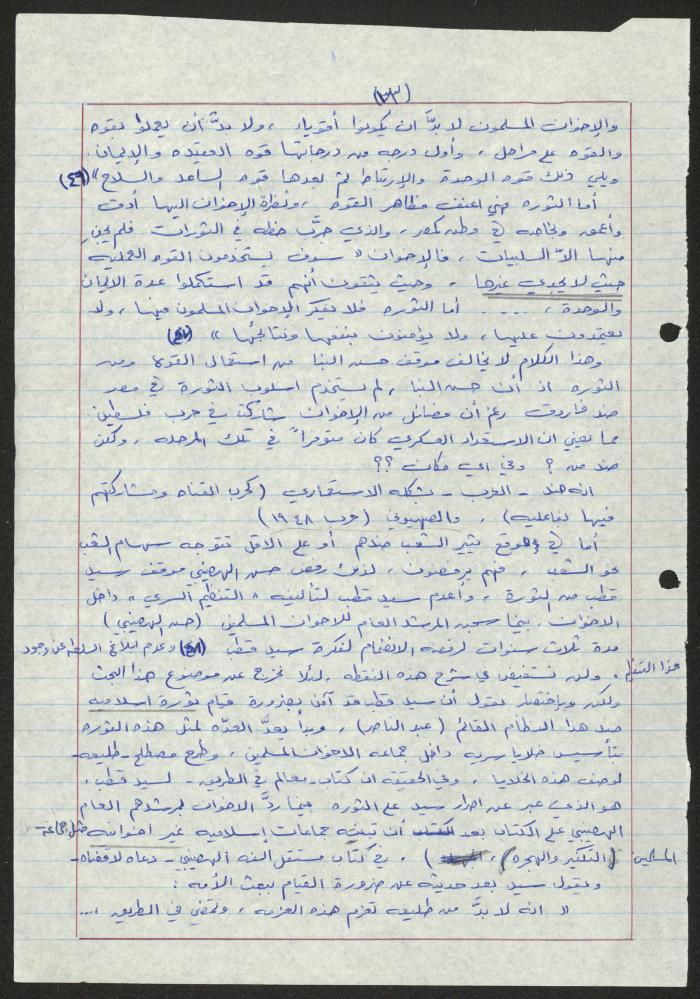 (٣٣)
والإخوان المسلمون لا بدَّ ان يكونوا أقوياء ، ولا بدَّ أن يعملوا بقوه
والقوه على مراحل ، وأول درجه من درجاتها قوه العقيده والإيمان .
ويلي ذلك قوه الوحدة والإرتباط ثم بعدها قوه الساعد والسلاح » (٤٦)
أما الثوره فهي اعنف مظاهر القوه ، ونظرة الإخوان اليها أدق
وأعمق وبخاصه في وطن كمصر ، والذي جرَّب حظه في الثورات فلم يجنِ
منها الاَّ السلبيات ، فالإخوان « سوف يستخدمون القوه العمليه
حيث لا يجدي غيرها ، وحيث يثقون أنهم قد استكملوا عدة الايمان
والوحدة ، .... أما الثوره فلا يفكر الإخوان المسلمون فيها ، ولا
يعتمدون عليها ، ولا يؤمنون بنفعها ونتائجها » (٤٧)
وهذا الكلام لا يخالف موقف حسن البنا من استعمال القوه ومن
الثوره اذ أن حسن البنا ، لم يستخدم اسلوب الثورة في مصر
ضد فاروق رغم أن فصائل من الإخوان شاركت في حرب فلسطين
مما يعني ان الاستعداد العسكري كان متوفراً في تلك المرحله ، ولكن
ضد من ؟ وفي اي مكان ؟؟
انه ضد - الغرب - بشكله الاستعماري (كحرب القناه ومشاركتهم
فيها بفاعليه) ، والصهيوني (حرب ١٩٤٨)
أما في موقع يثير الشعب ضدهم أو على الاقل تتوجه سهام الشعب
نحو الشعب ، فهم يرفضون ، لذلك رفض حسن الهضيبي موقف سيد
قطب من الثورة ، وأعدم سيد قطب لتأليفه « التنظيم السري » داخل
الاخوان . بينما سجن المرشد العام للاخوان المسلمين (حسن الهضيبي)
مدة ثلاث سنوات لرفضه الانضمام لفكرة سيد قطب (٤٨) وعدم ابلاغ السلطه عن وجود
هذا التنظيم . ولن نستفيض في شرح هذه النقطه . لئلا نخرج عن موضوع هذا البحث
ولكن وباختصار نقول أن سيد قطب قد آمن بضرورة قيام ثورة اسلاميه
ضد هذا النظام القائم (عبد الناصر) ، وبدأ يعدُّ العدّه لمثل هذه الثوره
بتأسيس خلايا سريه داخل جماعه الاخوان المسلمين ، وطرح مصطلح - طليعه -
لوصف هذه الخلايا ، وفي الحقيقة ان كتاب - معالم في الطريق - لسيد قطب ،
هو الذي عبر عن اصرار سيد على الثوره بينما ردَّ الاخوان بمرشدهم العام
الهضيبي على الكتاب بعد أن تبنته جماعات إسلاميه غير اخوانيه مثل جماعة
المسلمين (التكفير والهجره) ، في كتاب مستقل الفه الهضيبي - دعاه لا قضاه -
ويقول سيد بعد حديثه عن ضرورة القيام ببعث الأمه :
« انه لا بدَّ من طليعه تعزم هذه العزمه ، وتمضي في الطريق ....